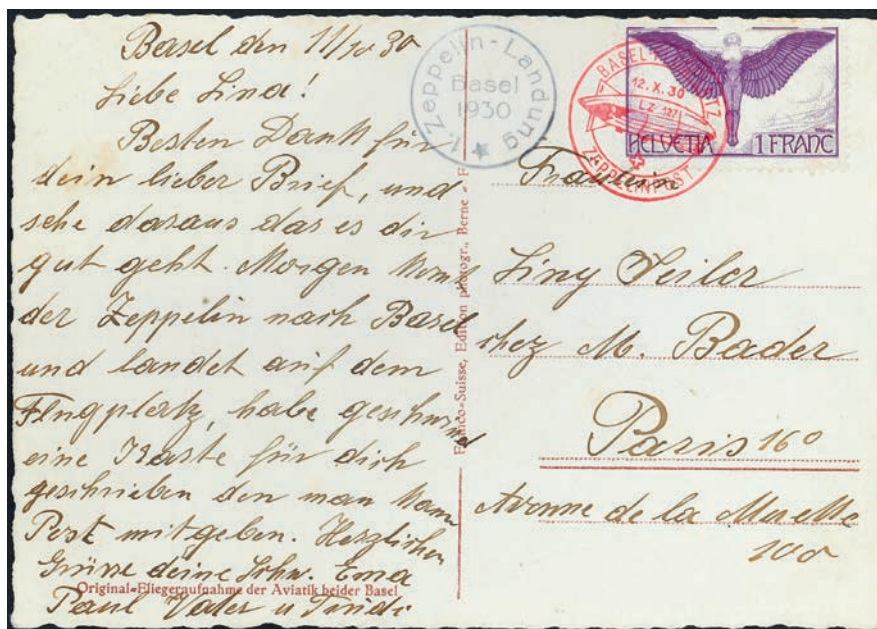 Basel den 11/10 30
Liebe Lina!
Besten Dank für
dein lieber Brief, und
sehe daraus das es dir
gut geht. Morgen kommt
der Zeppelin nach Basel
und landet auf dem
Flugplatz, habe geschwind
eine Karte für dich
geschrieben den man kann
Post mitgeben. Herzlichen
Grüsse deine Schw. Erna
Paul Vater u Trudi
Original=Fliegeraufnahme der Aviatik beider Basel
Franco-Suisse, Edition photogr., Berne
1. Zeppelin-Landung
Basel
1930
BASEL
12.X.30
LZ 127
ZEPPELINPOST
HELVETIA 1 FRANC
Fräulein
Liny Seiler
chez M. Bader
Paris 16e
Avenue de la Muette
100